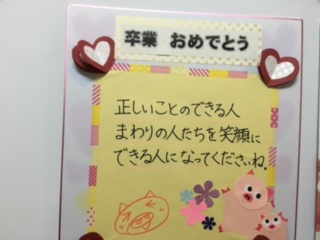 卒業 おめでとう
正しいことのできる人
まわりの人たちを笑顔に
できる人になってくださいね。